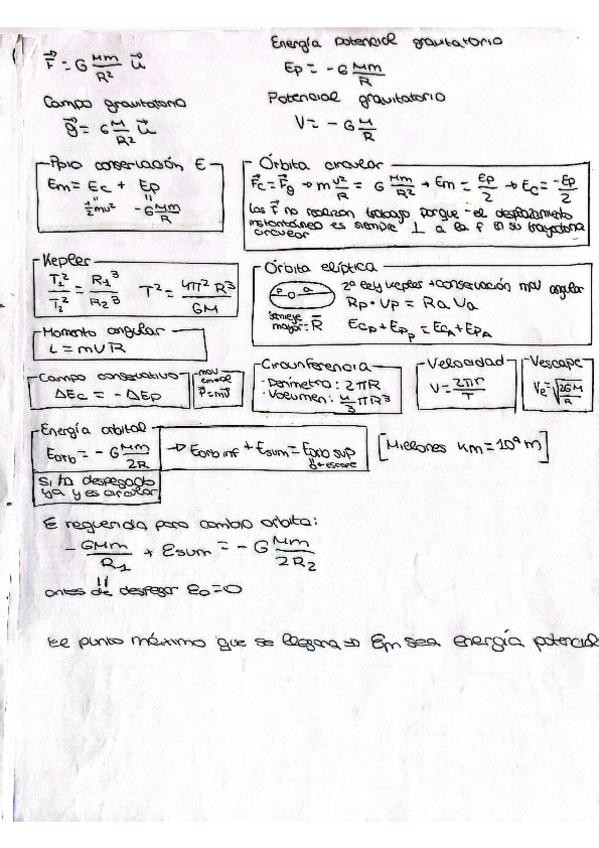 F⃗ = G Mm/R² u⃗
Energía potencial gravitatorio
Ep = - G Mm/R
Campo gravitatorio
g⃗ = G M/R² u⃗
Potencial gravitatorio
V = - G M/R
Ppio conservación E
Em = Ec + Ep
½mv² -G Mm/R
Órbita circular
F⃗c = F⃗g → m v²/R = G Mm/R² → Em = Ep/2 → Ec = -Ep/2
Las F⃗ no realizan trabajo porque el desplazamiento
instantáneo es siempre ⊥ a la F en su trayectoria
circular
Kepler
T₁²/T₂² = R₁³/R₂³ T² = 4π² R³/GM
Órbita elíptica
2º ley Kepler + conservación mov angular
Rp · Vp = Ra Va
semieje
mayor = R̄
Ecp + Epp = EcA + EpA
Momento angular
L = mVR
Campo conservativo
ΔEc = - ΔEp
mov
lineal
p⃗ = mv⃗
Circunferencia
· Perímetro: 2πR
· Volumen: 4/3 πR³
Velocidad
V = 2πr/T
Vescape
Ve = √2GM/R
Energía orbital
Eorb = - G Mm/2R
→ Eorb inf + Esum = Eorb sup
ó escape
[Millones km = 10⁹ m]
Si ha despegado
ya y es circular
E requerida para cambio órbita:
- GMm/R₁ + Esum = - G Mm/2R₂
antes de despegar E₀ = 0
El punto máximo que se llegara → Em sea energía potencial